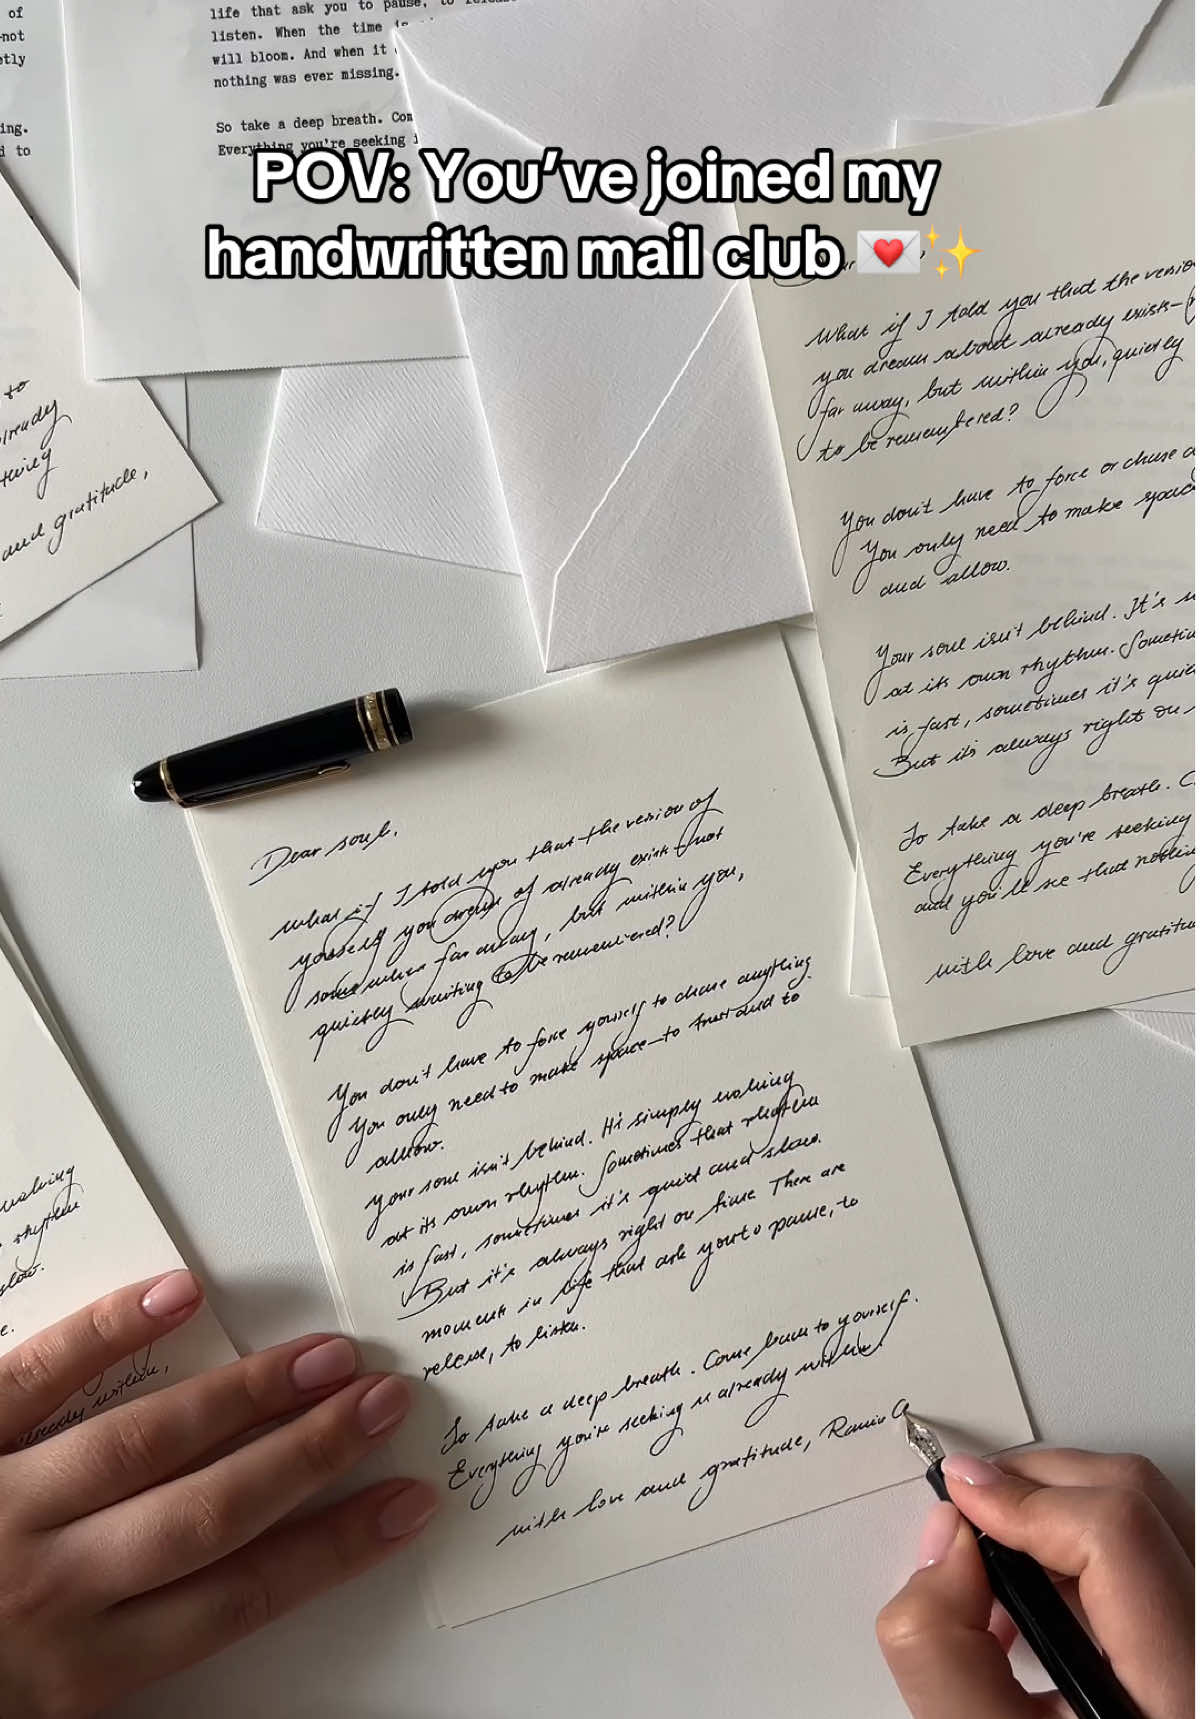 of
not
etly
ing.
d to
life that ask you to pause, to release
listen. When the time is
will bloom. And when it
nothing was ever missing.
So take a deep breath. Com
Everything you're seeking i
POV: You've joined my
handwritten mail club 💌✨
to
already
and gratitude,
What if I told you that the versio
you dream about already exists—
far away, but within you, quietly
to be remembered?
You don't have to force or chase a
You only need to make space
and allow.
Your soul isn't behind. It's
at its own rhythm. Sometim
is fast, sometimes it's quie
But it's always right on
So take a deep breath. C
Everything you're seeking
and you'll see that nothin
with love and gratitu
Dear soul,
What if I told you that the version of
yourself you dream of already exist—not
somewhere far away, but within you,
quietly waiting to be remembered?
You don't have to force yourself to chase anything.
You only need to make space—to trust and to
allow.
Your soul isn't behind. It's simply walking
at its own rhythm. Sometimes that rhythm
is fast, sometimes it's quiet and slow.
But it's always right on time There are
moments in life that ask you to pause, to
release, to listen.
So take a deep breath. Come back to yourself.
Everything you're seeking is already within
with love and gratitude,
walking
rhythm
slow.
e.
already within,